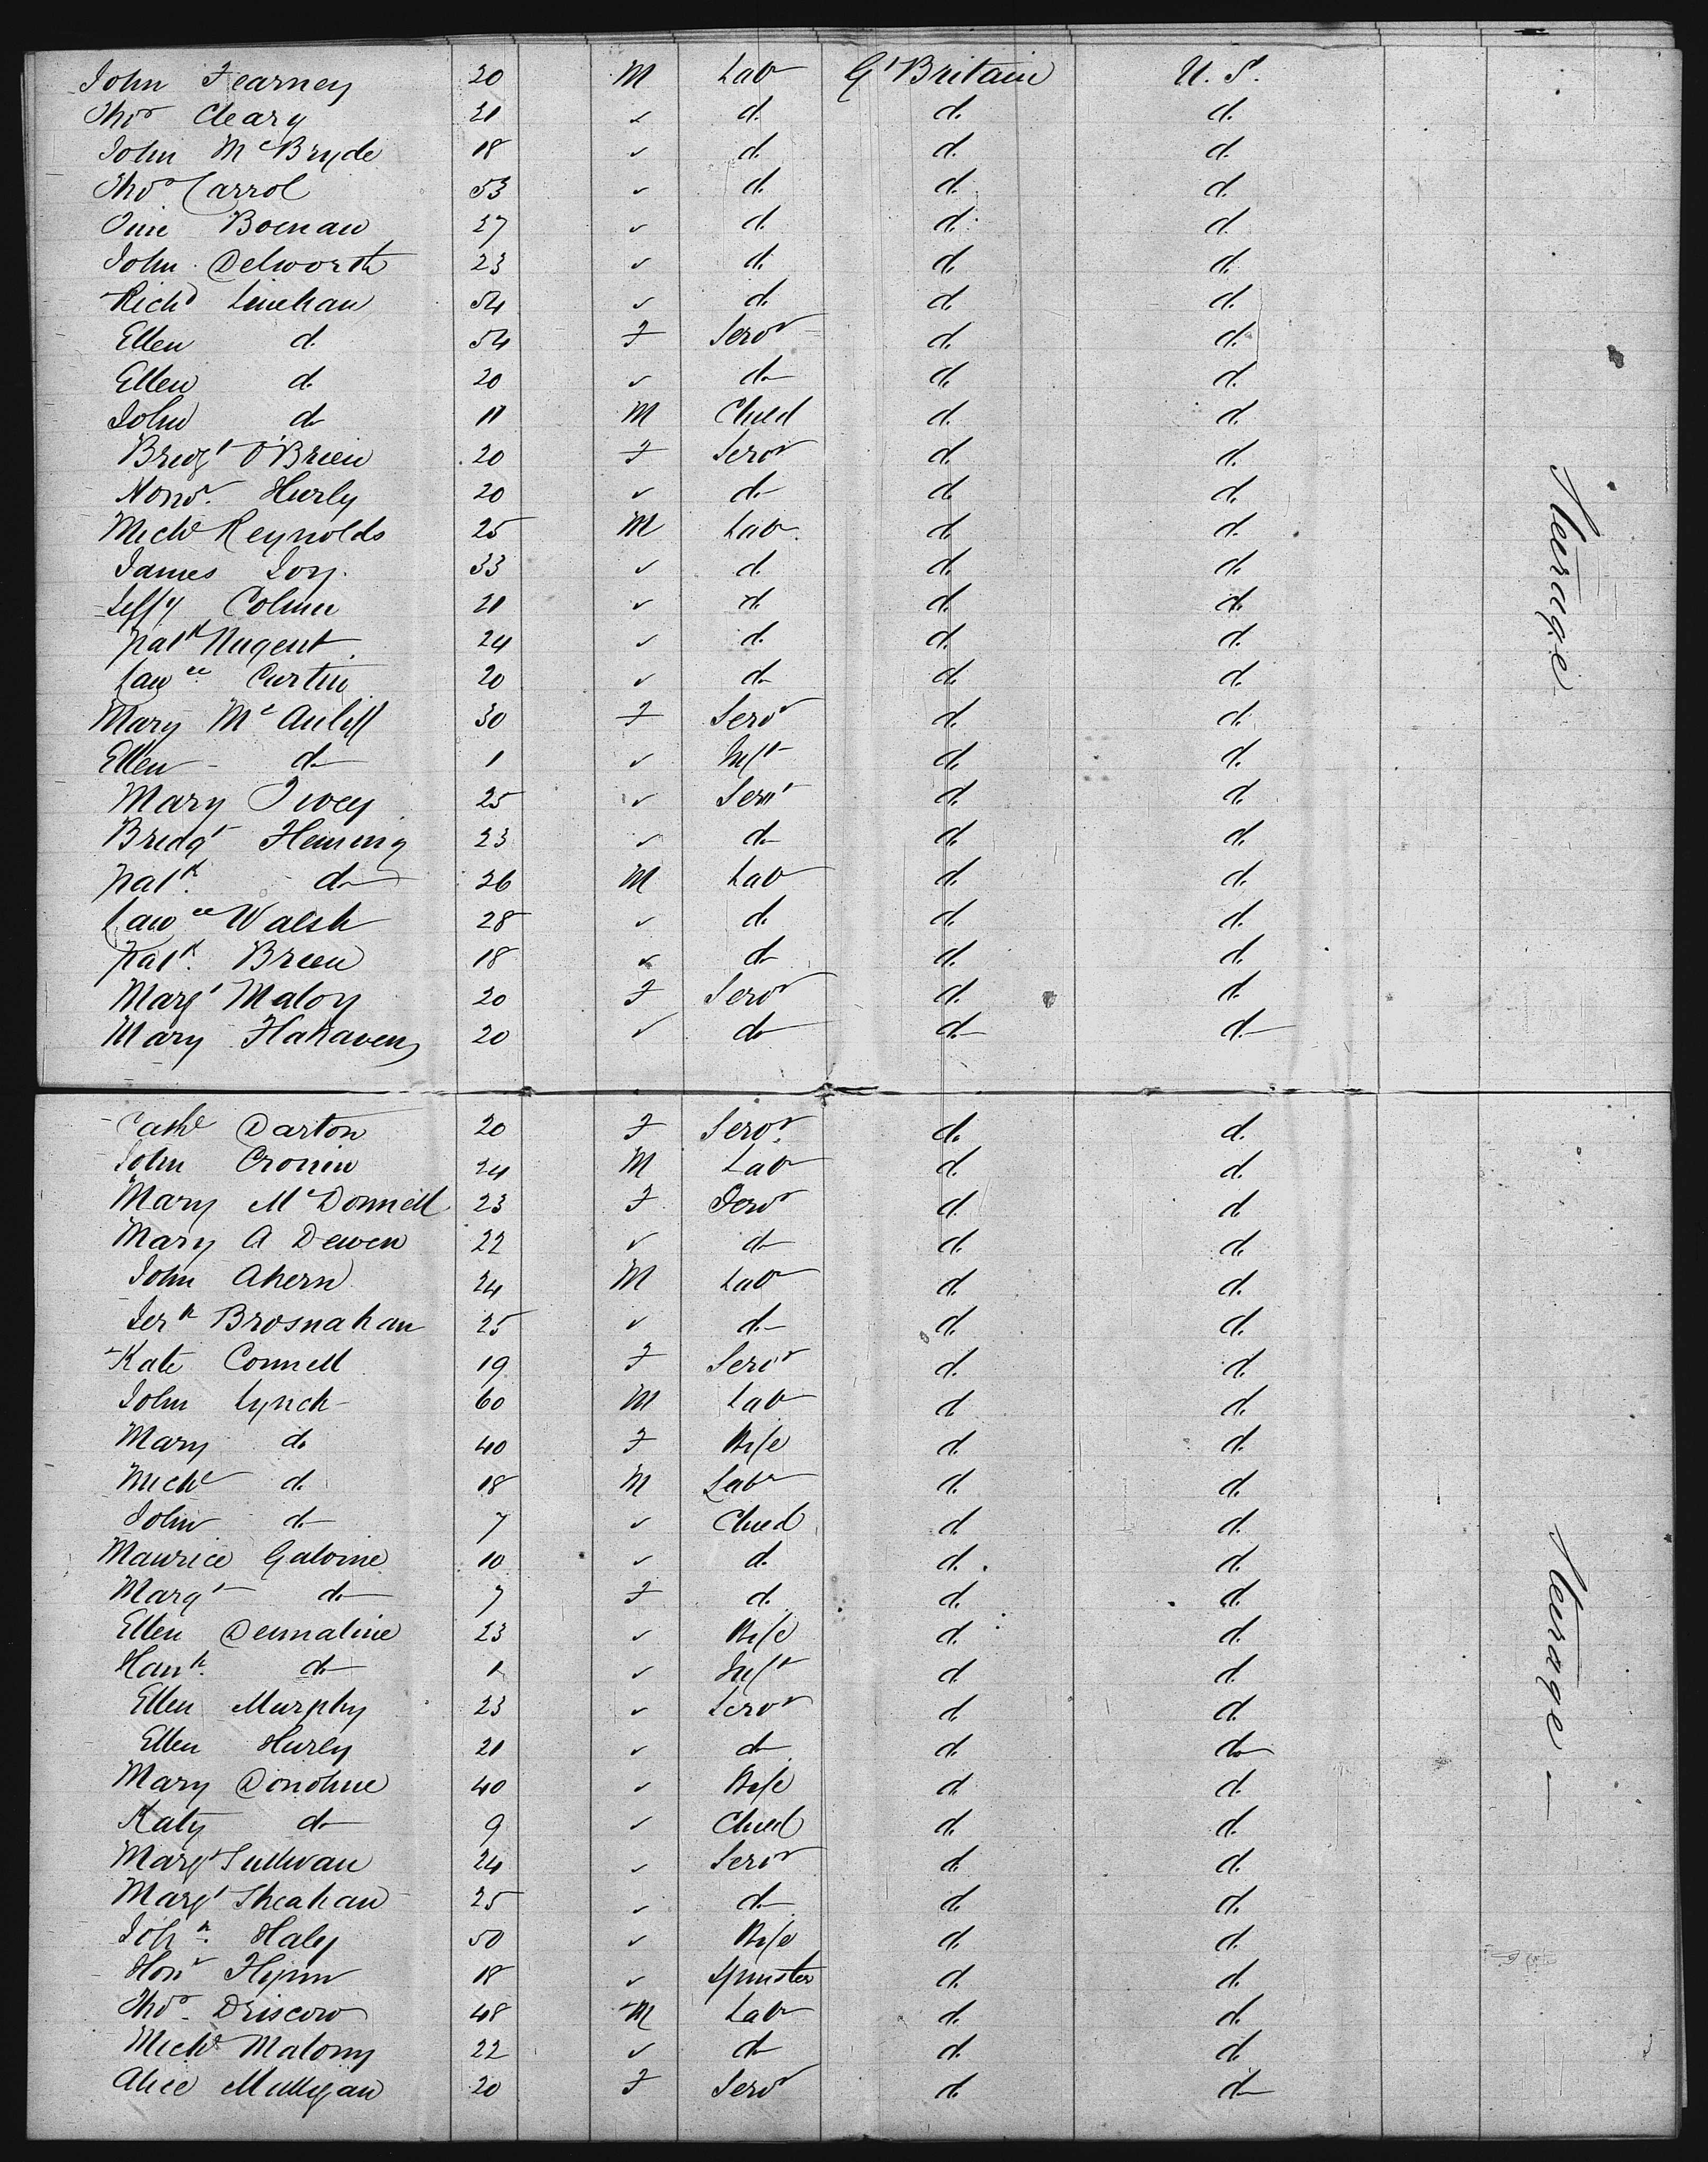 John Fearney 20 M Lab Gt Britain U. S.
Thos Cleary 21 ✓ d. d. d.
John McBryde 18 ✓ d. d. d.
Thos Carrol 53 ✓ d. d. d.
Boenan 27 ✓ d. d. d.
John Delworth 23 ✓ d. d. d.
Richd Linehan 54 ✓ d. d. d.
Ellen d. 54 F Servt d. d.
Ellen d. 20 ✓ do d. d.
John do 11 M Child d. d.
Bridgt O'Brien 20 F Servt d. d.
Honr. Hurly 20 ✓ do d. d.
Michl Reynolds 25 M Lab. d. d.
James Joy. 33 ✓ d. d. d.
Jeffy Colum 21 ✓ d. d. d.
Patk Nugent 24 ✓ d. d. d.
Lawce Curtin 20 ✓ do d. d.
Mary McAuliff 30 F Servt d. d.
Ellen do 1 ✓ Inft d. d.
Mary Twey 25 ✓ Servt d. d.
Bridgt Fleming 23 ✓ do d. d.
Patk. do 26 M Lab d. d.
Lawce Walsh 28 ✓ d. d. d.
Patk. Breen 18 ✓ do d. d.
Margt Maloy 20 F Servt d. d.
Mary Flahaven 20 ✓ do do do
Steerage
Cathe Darton 20 F Servt d. d.
John Cronin 24 M Lab d. d.
Mary McDonnell 23 F Servt d. d.
Mary A Dewen 22 ✓ do d. d.
John Ahern 24 M Lab d. d.
Jerh Brosnahan 25 ✓ do d. d.
Kate Connell 19 F Servt d. d.
John Lynch 60 M Lab d. d.
Mary do 40 F Wife d. d.
Michl d. 18 M Labr d. d.
John do 7 ✓ Child d. d.
Maurice Galvine 10 ✓ d. d. d.
Margt do 7 F d. d. d.
Ellen Denmaline 23 ✓ Wife d. d.
Hanh. do 1 ✓ Inft d. d.
Ellen Murphy 23 ✓ Servt d. d.
Ellen Hurly 21 ✓ do d. do
Mary Donohue 40 ✓ Wife d. d.
Katy do 9 ✓ Child d. d.
Margt Sullivan 24 ✓ Servt d. d.
Margt Sheahan 25 ✓ do d. d.
Johh. Haly 50 ✓ Wife d. d.
Honr Flynn 18 ✓ Spinster d. d.
Thos. Driscow 48 M Lab d. d.
Michl Malony 22 ✓ do d. d.
Alice Mulligan 20 F Servt d. do
Steerage —